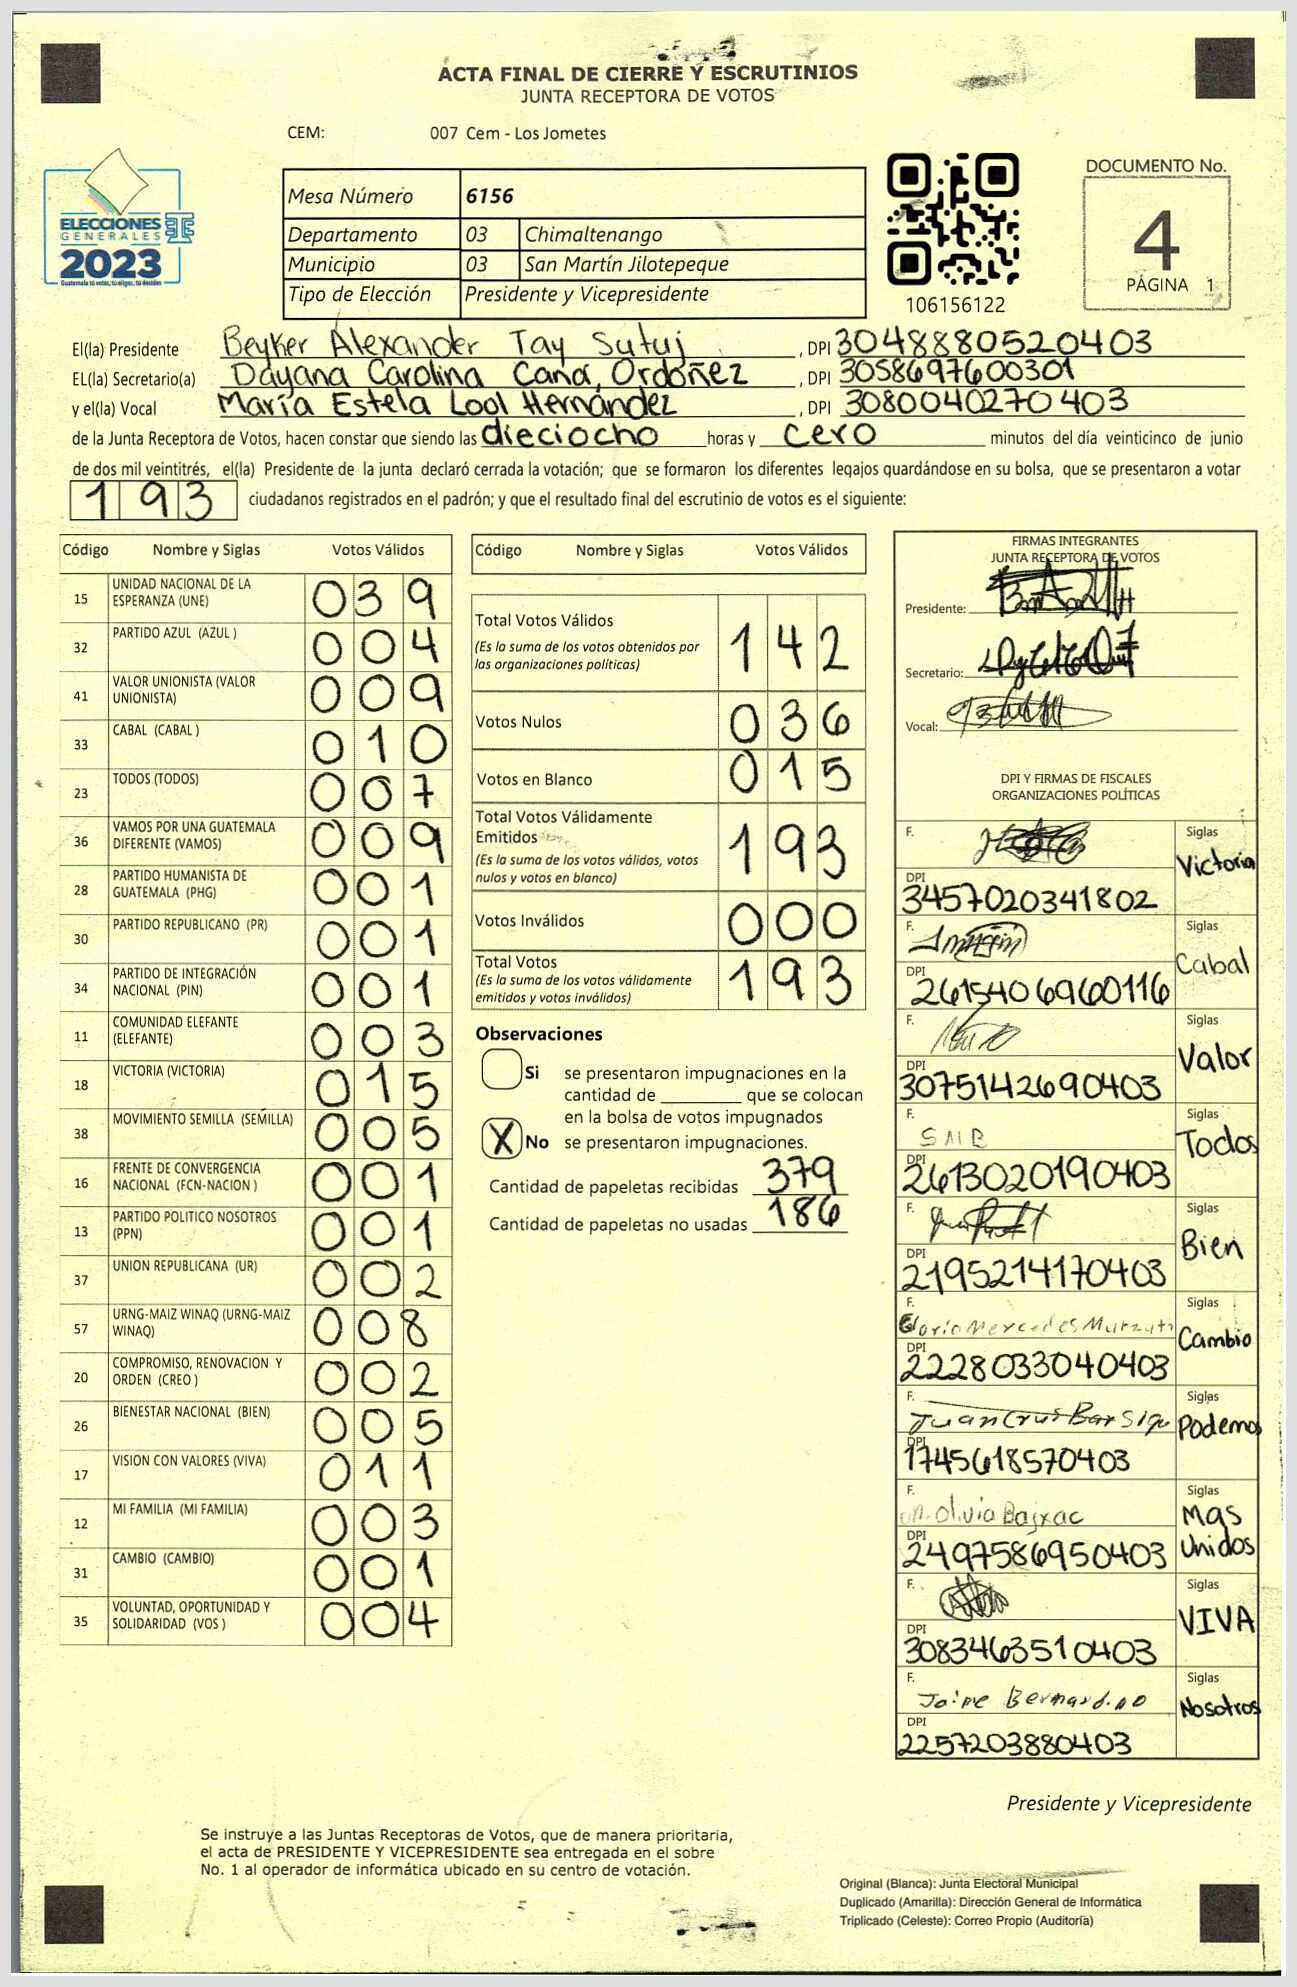 ACTA FINAL DE CIERRE Y ESCRUTINIOS
JUNTA RECEPTORA DE VOTOS
CEM: 007 Cem - Los Jometes
ELECCIONES
GENERALES
2023
Guatemala tú votas, tú eliges, tú decides
Mesa Número 6156
Departamento 03 Chimaltenango
Municipio 03 San Martín Jilotepeque
Tipo de Elección Presidente y Vicepresidente
106156122
DOCUMENTO No.
4
PÁGINA 1
El(la) Presidente Beyker Alexander Tay Sutuj, DPI 3048880520403
EL(la) Secretario(a) Dayana Carolina Cana, Ordoñez, DPI 3058697600301
y el(la) Vocal María Estela Lool Hernández, DPI 3080040270403
de la Junta Receptora de Votos, hacen constar que siendo las dieciocho horas y cero minutos del día veinticinco de junio
de dos mil veintitrés, el(la) Presidente de la junta declaró cerrada la votación; que se formaron los diferentes legajos quardándose en su bolsa, que se presentaron a votar
193 ciudadanos registrados en el padrón; y que el resultado final del escrutinio de votos es el siguiente:
Código Nombre y Siglas Votos Válidos
15 UNIDAD NACIONAL DE LA ESPERANZA (UNE) 039
32 PARTIDO AZUL (AZUL ) 004
41 VALOR UNIONISTA (VALOR UNIONISTA) 009
33 CABAL (CABAL ) 010
23 TODOS (TODOS) 007
36 VAMOS POR UNA GUATEMALA DIFERENTE (VAMOS) 009
28 PARTIDO HUMANISTA DE GUATEMALA (PHG) 001
30 PARTIDO REPUBLICANO (PR) 001
34 PARTIDO DE INTEGRACIÓN NACIONAL (PIN) 001
11 COMUNIDAD ELEFANTE (ELEFANTE) 003
18 VICTORIA (VICTORIA) 015
38 MOVIMIENTO SEMILLA (SEMILLA) 005
16 FRENTE DE CONVERGENCIA NACIONAL (FCN-NACION ) 001
13 PARTIDO POLITICO NOSOTROS (PPN) 001
37 UNION REPUBLICANA (UR) 002
57 URNG-MAIZ WINAQ (URNG-MAIZ WINAQ) 008
20 COMPROMISO, RENOVACION Y ORDEN (CREO ) 002
26 BIENESTAR NACIONAL (BIEN) 005
17 VISION CON VALORES (VIVA) 011
12 MI FAMILIA (MI FAMILIA) 003
31 CAMBIO (CAMBIO) 001
35 VOLUNTAD, OPORTUNIDAD Y SOLIDARIDAD (VOS ) 004
Código Nombre y Siglas Votos Válidos
Total Votos Válidos 142
(Es la suma de los votos obtenidos por
las organizaciones políticas)
Votos Nulos 036
Votos en Blanco 015
Total Votos Válidamente
Emitidos 193
(Es la suma de los votos válidos, votos
nulos y votos en blanco)
Votos Inválidos 000
Total Votos 193
(Es la suma de los votos válidamente
emitidos y votos inválidos)
Observaciones
Si se presentaron impugnaciones en la
cantidad de ________ que se colocan
en la bolsa de votos impugnados
X No se presentaron impugnaciones.
Cantidad de papeletas recibidas 379
Cantidad de papeletas no usadas 186
FIRMAS INTEGRANTES
JUNTA RECEPTORA DE VOTOS
Presidente:
Secretario:
Vocal:
DPI Y FIRMAS DE FISCALES
ORGANIZACIONES POLÍTICAS
F. Siglas Victoria
DPI 3457020341802
F. Siglas Cabal
DPI 2615406960116
F. Siglas Valor
DPI 3075142690403
F. SMB Siglas Todos
DPI 2613020190403
F. Siglas Bien
DPI 2195214170403
F. Gloria Mercedes Siglas Cambio
DPI 2228033040403
F. Juan Cruz Siglas Podemos
DPI 1745618570403
F. Olivia Bajxac Siglas Mas Unidos
DPI 2497586950403
F. Siglas VIVA
DPI 3083463510403
F. Jaime Bernardino Siglas Nosotros
DPI 2257203880403
Presidente y Vicepresidente
Se instruye a las Juntas Receptoras de Votos, que de manera prioritaria,
el acta de PRESIDENTE Y VICEPRESIDENTE sea entregada en el sobre
No. 1 al operador de informática ubicado en su centro de votación.
Original (Blanca): Junta Electoral Municipal
Duplicado (Amarilla): Dirección General de Informática
Triplicado (Celeste): Correo Propio (Auditoría)